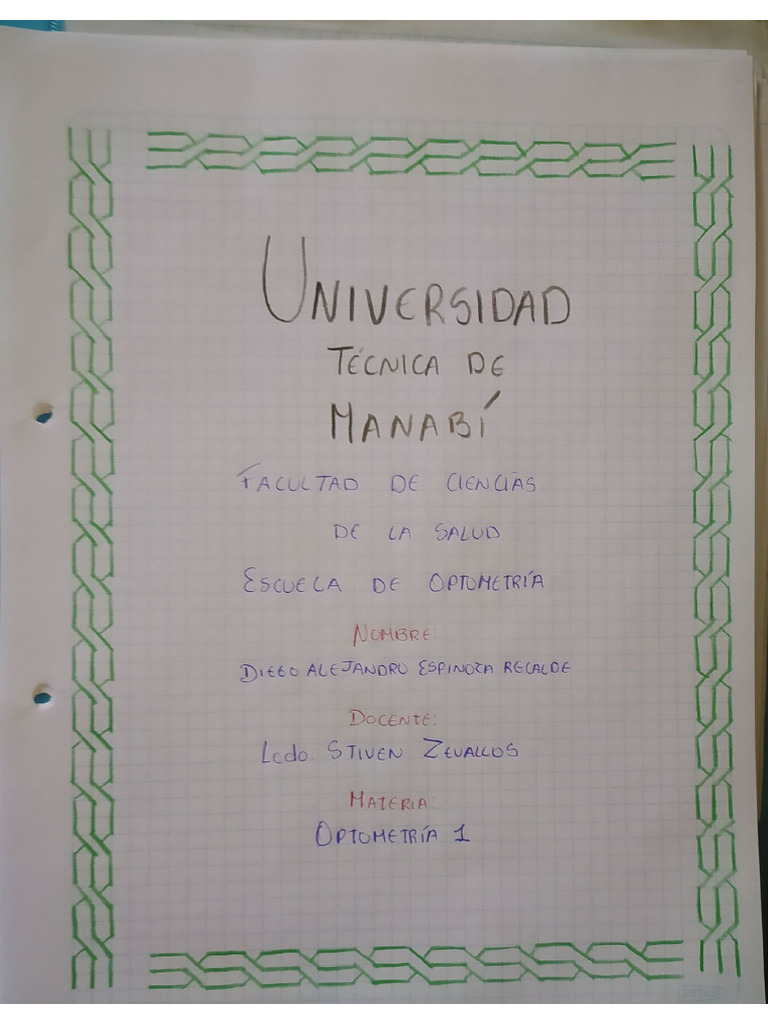 UNIVERSIDAD
TÉCNICA DE
MANABÍ
FACULTAD DE CIENCIAS
DE LA SALUD
ESCUELA DE OPTOMETRÍA
NOMBRE:
DIEGO ALEJANDRO ESPINOZA RECALDE
DOCENTE:
Lcdo. STIVEN ZEVALLOS
MATERIA:
OPTOMETRÍA 1